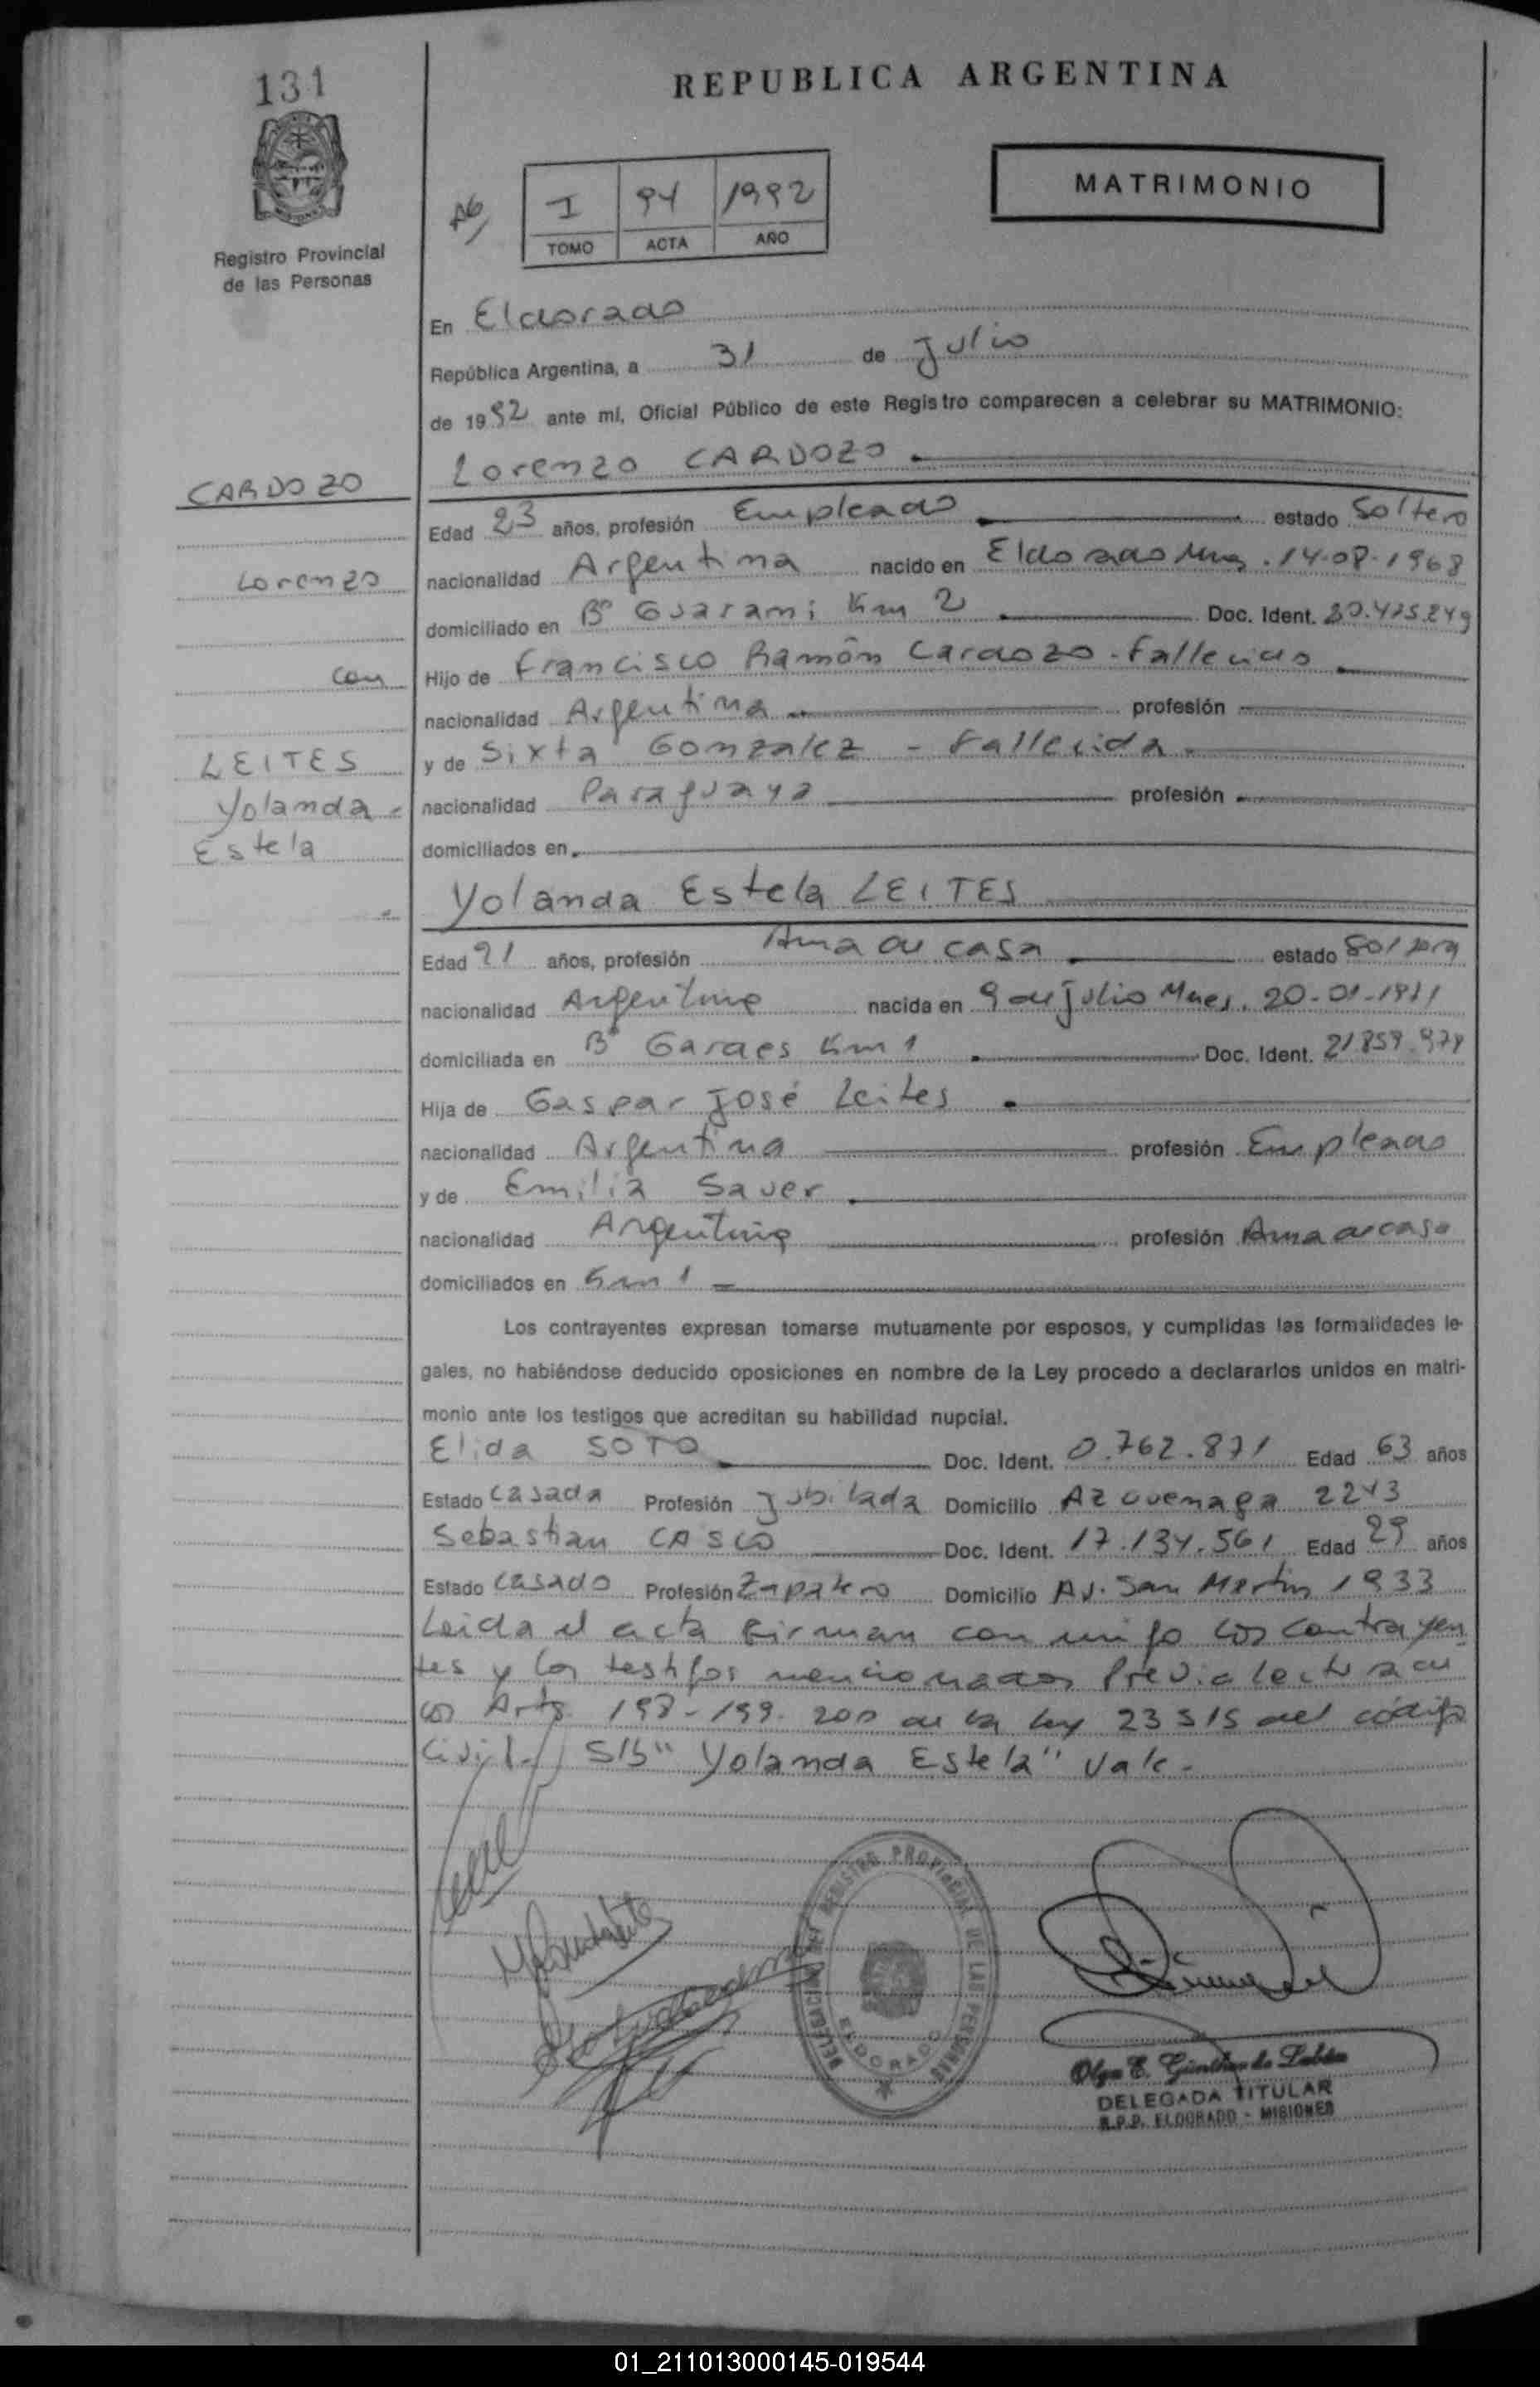 131
REPUBLICA ARGENTINA
MATRIMONIO
I 94 1992
TOMO ACTA AÑO
Registro Provincial
de las Personas
En Eldorado
República Argentina, a 31 de Julio
de 1992 ante mí, Oficial Público de este Registro comparecen a celebrar su MATRIMONIO:
Lorenzo CARDOZO
CARDOZO
Edad 23 años, profesión Empleado estado Soltero
Lorenzo
nacionalidad Argentina nacido en Eldorado Mnes. 14-08-1968
domiciliado en B° Guarani Km 2 Doc. Ident. 20.475.249
con
Hijo de Francisco Ramón Cardozo - Fallecido
nacionalidad Argentina profesión
LEITES
y de Sixta Gonzalez - Fallecida
Yolanda
nacionalidad Paraguaya profesión
Estela
domiciliados en
Yolanda Estela LEITES
Edad 21 años, profesión Ama de casa estado Soltera
nacionalidad Argentina nacida en 9 de Julio Mnes. 20-01-1971
domiciliada en B° Garaes Km 1 Doc. Ident. 21.859.979
Hija de Gaspar José Leites
nacionalidad Argentina profesión Empleado
y de Emilia Saver
nacionalidad Argentina profesión Ama de casa
domiciliados en Km 1
Los contrayentes expresan tomarse mutuamente por esposos, y cumplidas las formalidades le-
gales, no habiéndose deducido oposiciones en nombre de la Ley procedo a declararlos unidos en matri-
monio ante los testigos que acreditan su habilidad nupcial.
Elida SOTO Doc. Ident. 0.762.871 Edad 63 años
Estado Casada Profesión Jubilada Domicilio Azcuenaga 2243
Sebastian CASCO Doc. Ident. 17.134.561 Edad 29 años
Estado Casado Profesión Zapatero Domicilio Av. San Martin 1933
Leida el acta firman conmigo los contrayen
tes y los testigos mencionados Previa lectura de
los Arts. 198-199-200 de la ley 23515 del código
Civil.- S/b "Yolanda Estela" Vale -
DELEGACION DEL REGISTRO PROVINCIAL DE LAS PERSONAS
ELDORADO
Olga E. Günther de Lubán
DELEGADA TITULAR
R.P.P. ELDORADO - MISIONES
01_211013000145-019544